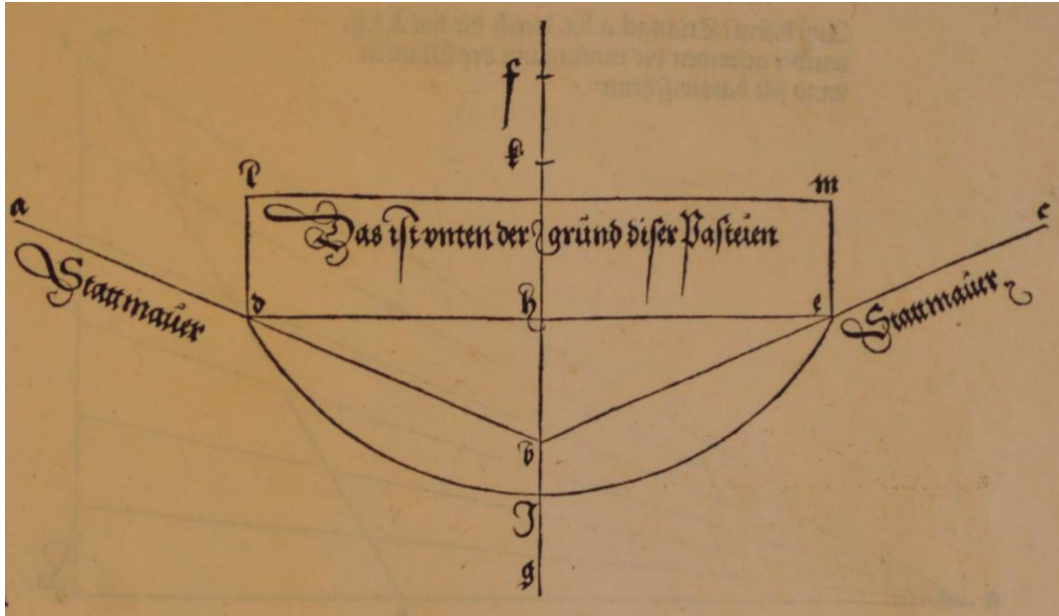 f
k
l
m
a
c
Das ist vnten der gründ diser Pasteien
Stattmaüer
Stattmaüer
d
h
e
b
J
g